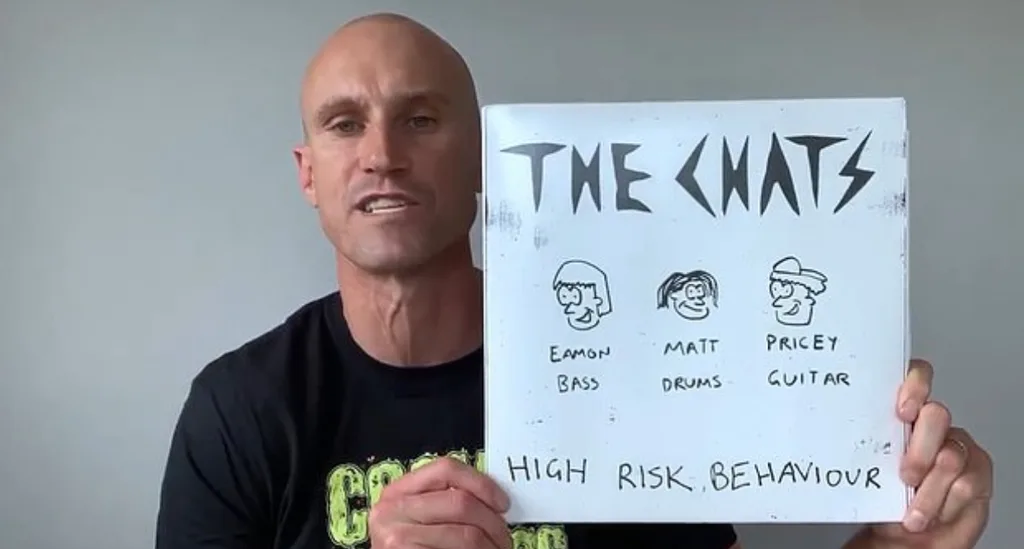 THE CHATS
EAMON MATT PRICEY
BASS DRUMS GUITAR
HIGH RISK BEHAVIOUR